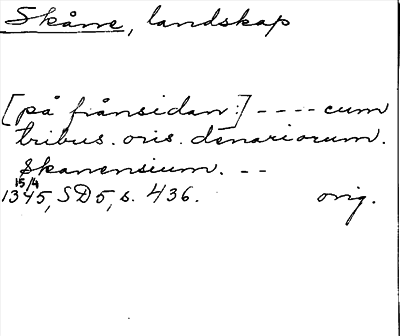 Skåne, landskap
[på frånsidan:] - - - - cum
tribus. oris. denariorum.
Skanensium. - -
15/4
1345, SD5, s. 436. orig.